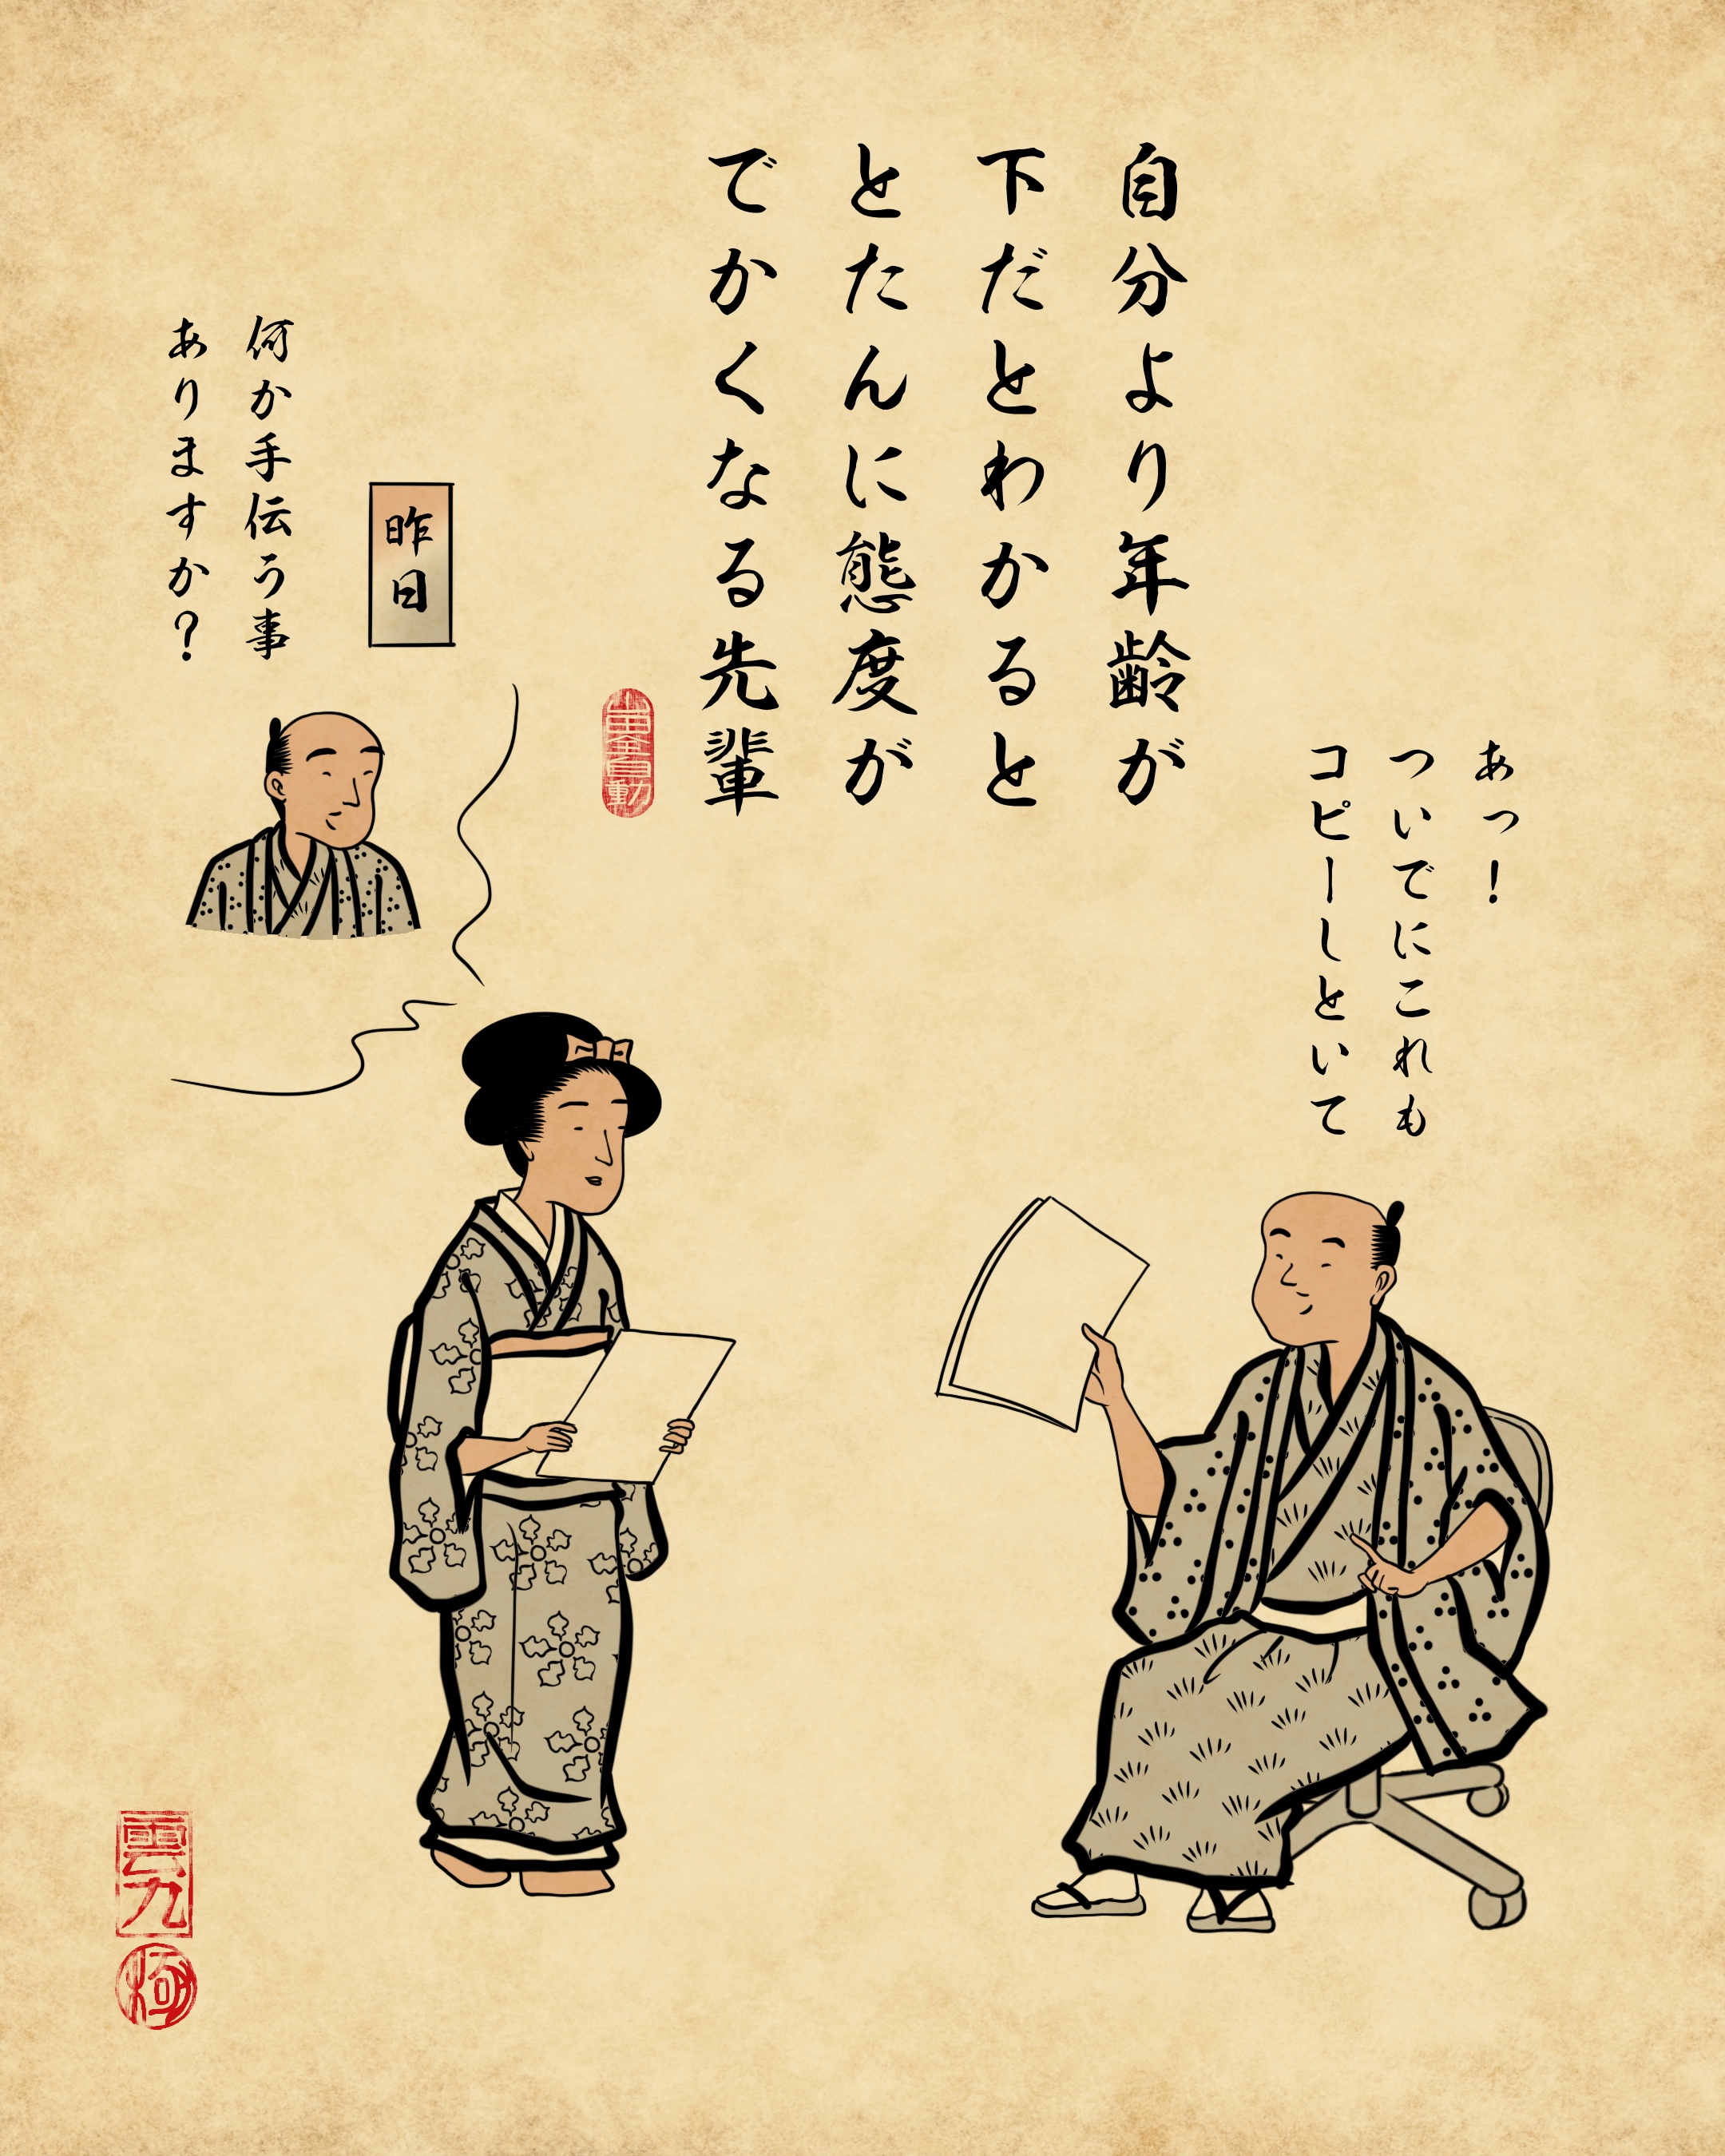 自分より年齢が
下だとわかると
とたんに態度が
でかくなる先輩
山田全自動
あっ！
ついでにこれも
コピーしといて
昨日
何か手伝う事
ありますか？
雲丸
極